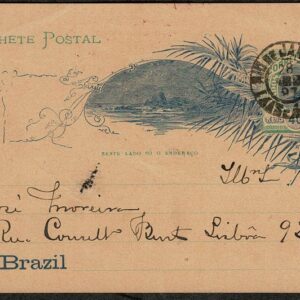 HETE POSTAL
NESTE LADO SÓ O ENDEREÇO
Illmo
José Moreira
Rua Conselt Bent Lisbôa 92
Brazil